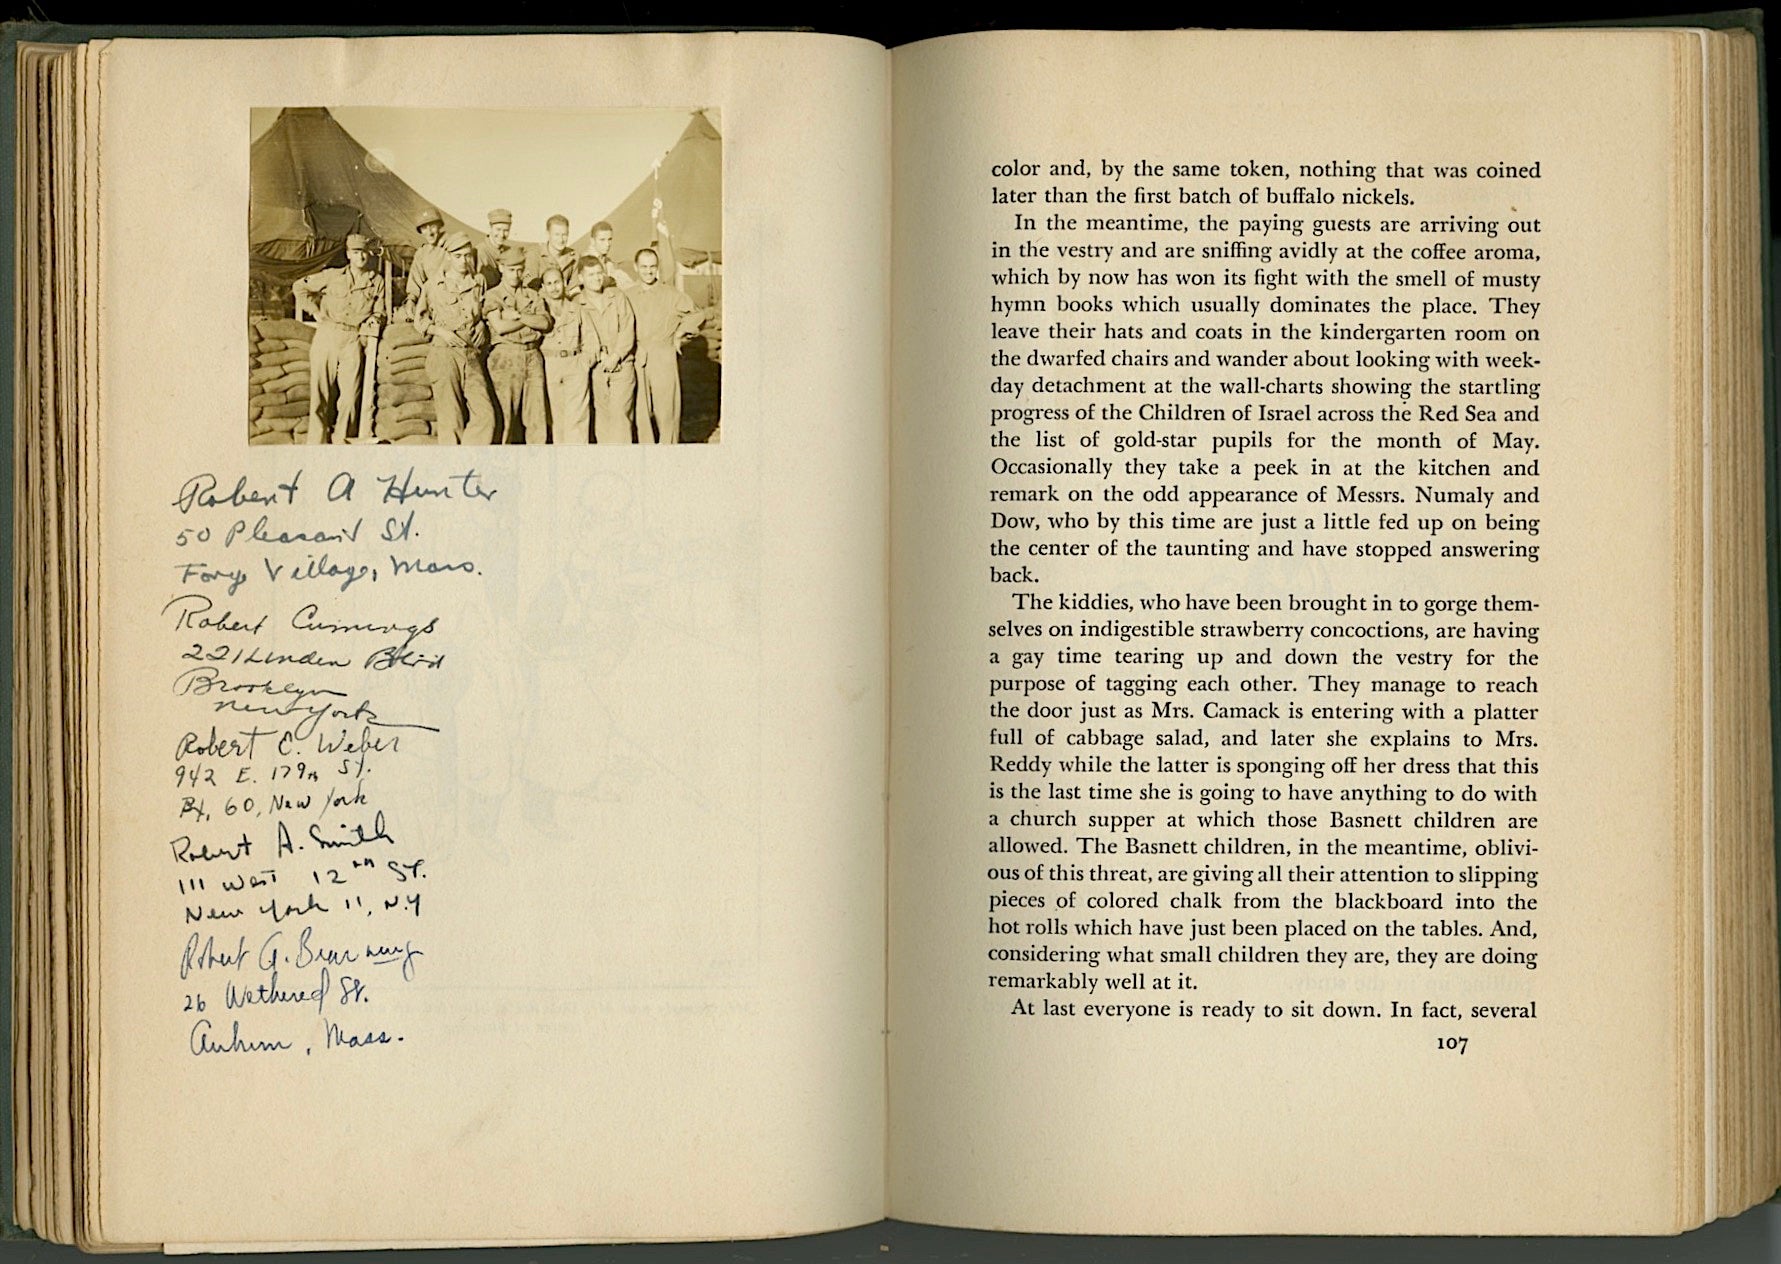 Robert A Hunter
50 Pleasant St.
Forge Village, Mass.
Robert Cummings
221 Linden Blvd
Brooklyn
New York
Robert C. Weber
942 E. 179th St.
Bx. 60, New York
Robert A. Smith
111 West 12th St.
New York 11, N.Y
Robert G.
26 Wethered St.
Auburn, Mass.
color and, by the same token, nothing that was coined
later than the first batch of buffalo nickels.
In the meantime, the paying guests are arriving out
in the vestry and are sniffing avidly at the coffee aroma,
which by now has won its fight with the smell of musty
hymn books which usually dominates the place. They
leave their hats and coats in the kindergarten room on
the dwarfed chairs and wander about looking with week-
day detachment at the wall-charts showing the startling
progress of the Children of Israel across the Red Sea and
the list of gold-star pupils for the month of May.
Occasionally they take a peek in at the kitchen and
remark on the odd appearance of Messrs. Numaly and
Dow, who by this time are just a little fed up on being
the center of the taunting and have stopped answering
back.
The kiddies, who have been brought in to gorge them-
selves on indigestible strawberry concoctions, are having
a gay time tearing up and down the vestry for the
purpose of tagging each other. They manage to reach
the door just as Mrs. Camack is entering with a platter
full of cabbage salad, and later she explains to Mrs.
Reddy while the latter is sponging off her dress that this
is the last time she is going to have anything to do with
a church supper at which those Basnett children are
allowed. The Basnett children, in the meantime, oblivi-
ous of this threat, are giving all their attention to slipping
pieces of colored chalk from the blackboard into the
hot rolls which have just been placed on the tables. And,
considering what small children they are, they are doing
remarkably well at it.
At last everyone is ready to sit down. In fact, several
107